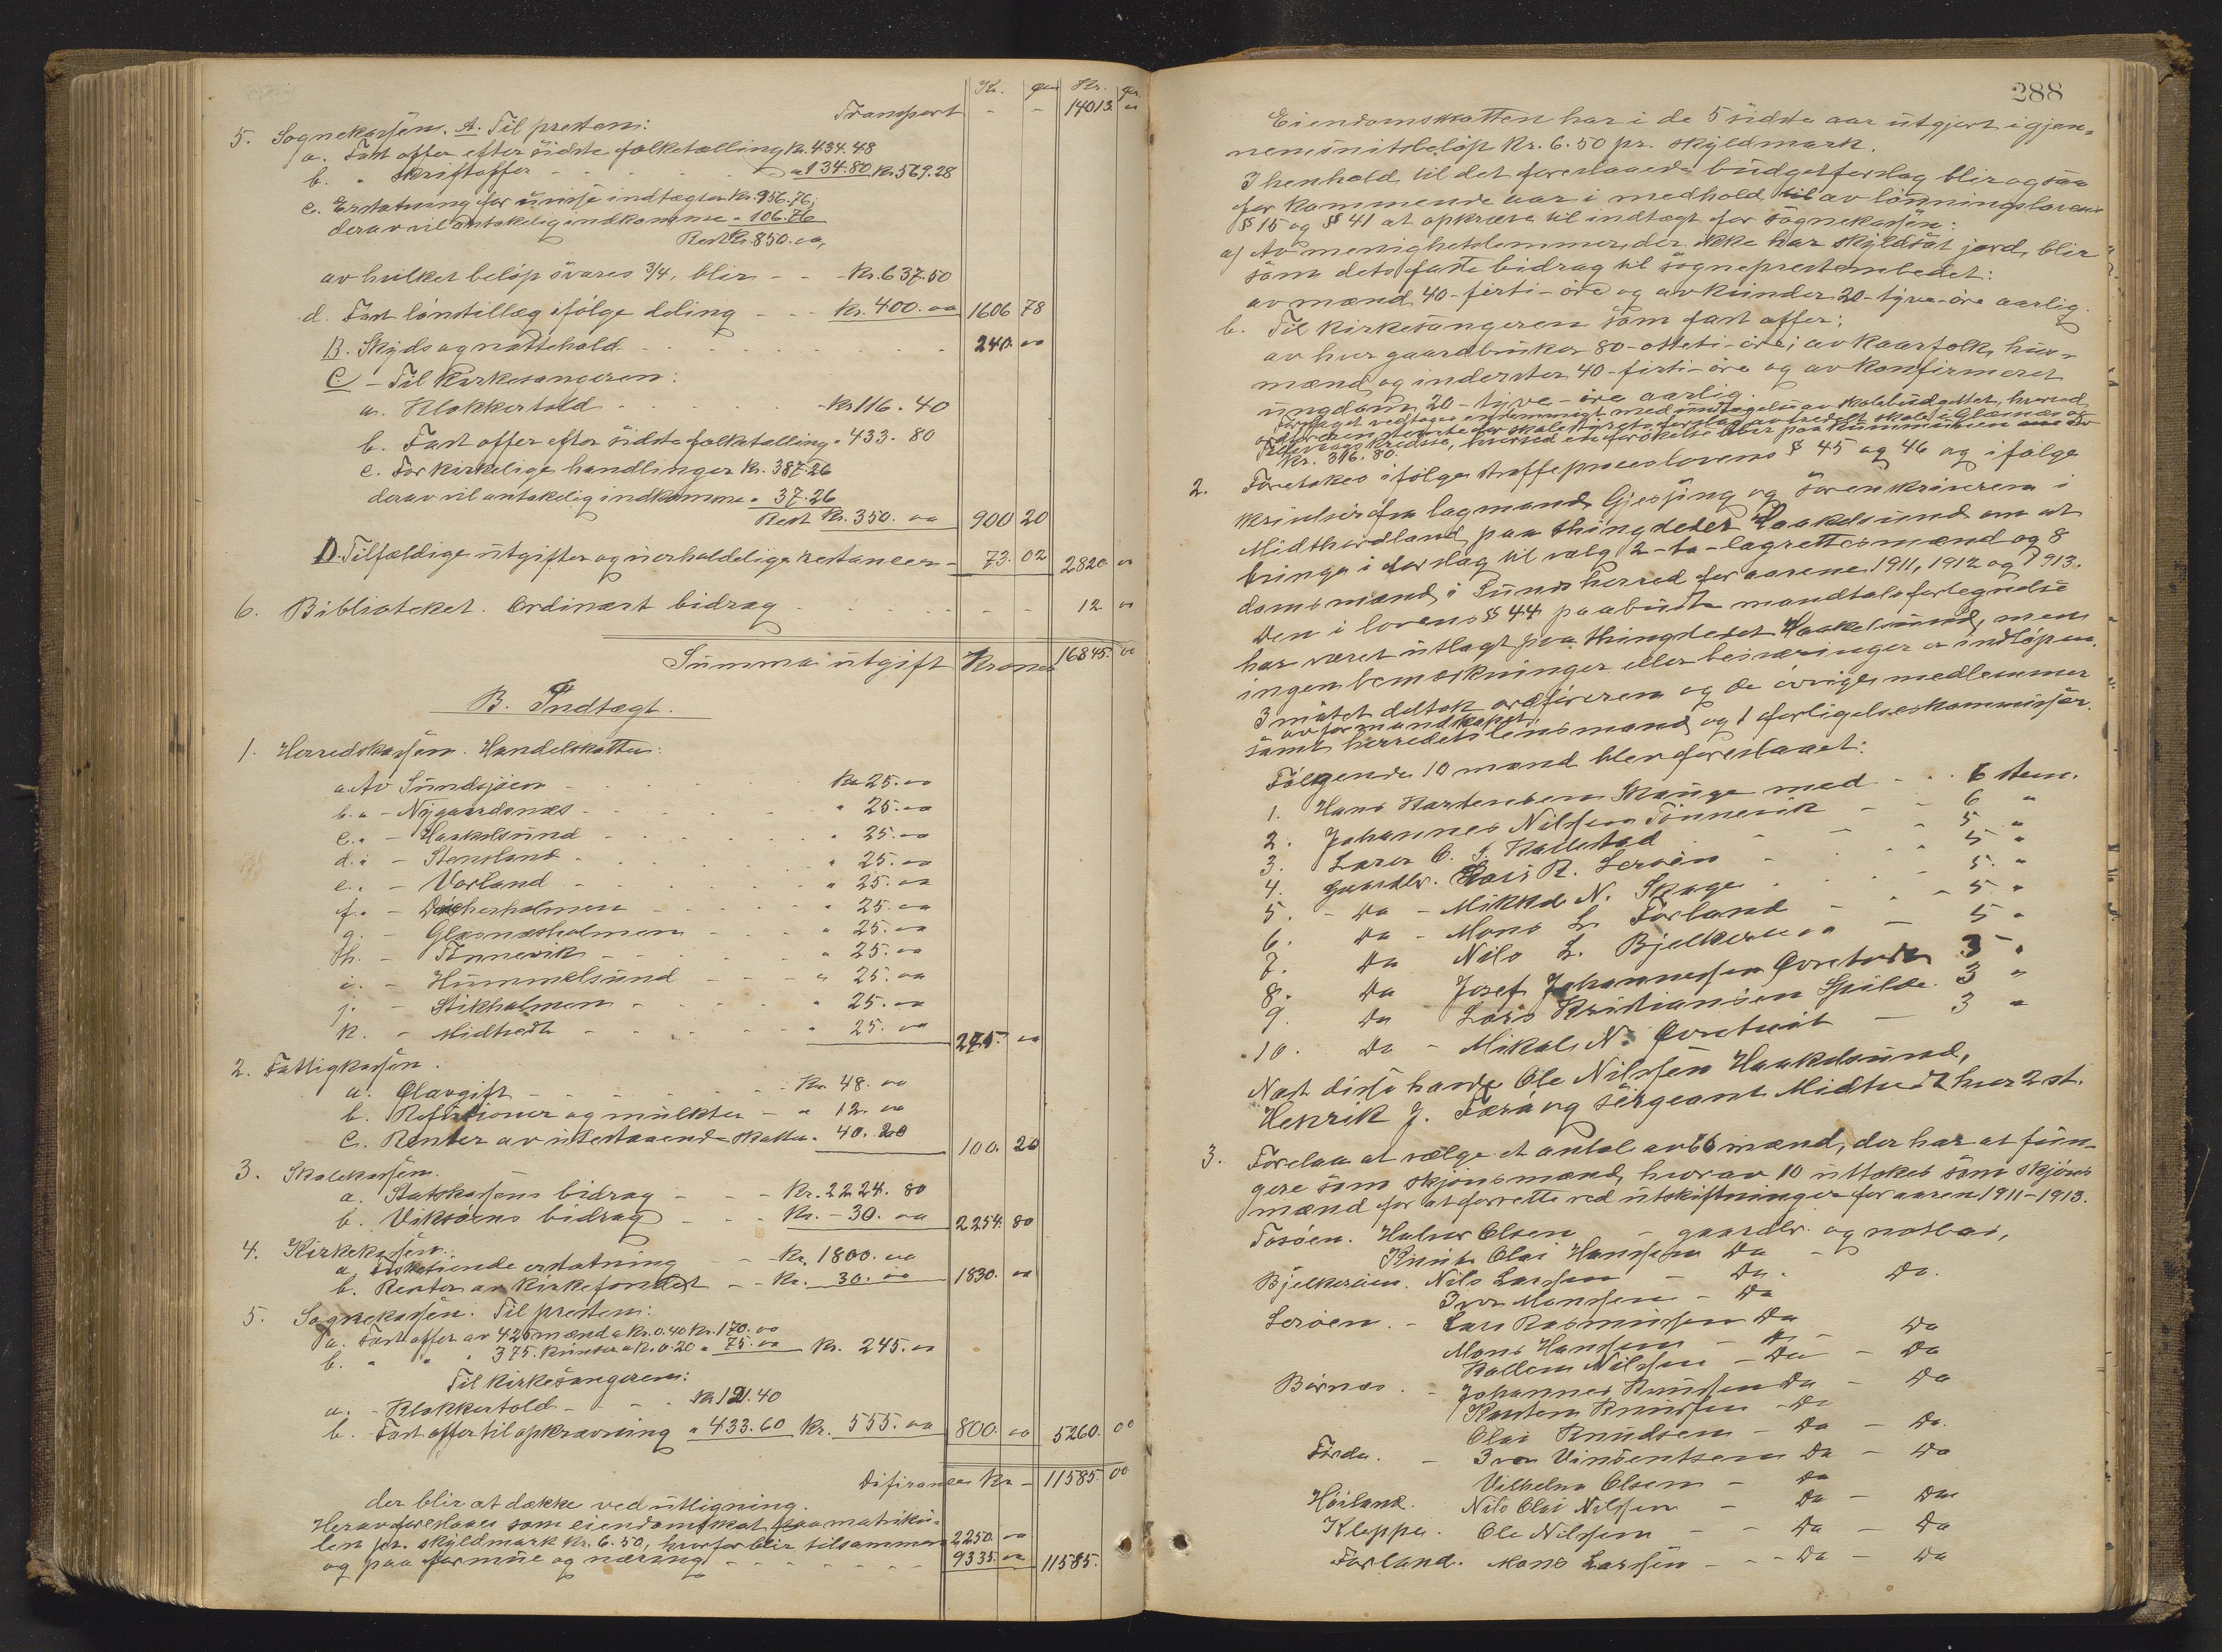 Kr. øre Kr. ør.
Transport - - 14013. 00
5. Sognekassen. A. Til presten:
a. Fast offer efter sidste folketælling Kr. 434.48
b. " Skriftoffer - - - - " 134.80 Kr. 569.28
c. Erstatning for uvisse indtægter Kr. 956.76,
derav vil antakelig indkomme " 106.76
Rest Kr. 850.00,
av hvilket beløp svares 3/4, blir - - Kr. 637.50
d. Fast lønstillæg ifølge deling - - Kr. 400.00 1606 78
B. Skyds og nattehold - - - - 240. 00
C - Til Kirkesangeren:
a. Klokkertold - - - - Kr 116.40
b. Fast offer efter sidste folketælling " 433.80
c. For kirkelige handlinger Kr. 387.26
derav vil antakelig indkomme " 37.26
Rest Kr. 350.00 900 20
D. Tilfældige utgifter og uerholdelige restancer - 73. 02 2820. 00
6. Biblioteket. Ordinært bidrag - - - - 12 00
Summa utgift Kroner 16845. 00
B. Indtægt.
1. Herredskassen. Handelskatter:
a. Av Sundsjøen - - - Kr 25.00
b. " - Nygaardsnæs - - - " 25.00
c. " - Haakelsund - - - " 25.00
d. " - Stensland - - - " 25.00
e. " - Vorland - - - " 25.00
f. " - holmen - - - " 25.00
g. - Glesnæsholmen - - - " 25.00
h. - Tønnevik - - - " 25.00
i. - Hummelsund - - - " 25.00
j. - Stikholmen - - - " 25.00
k. - Midtvedt - - - " 25.00 275. 00
2. Fattigkassen.
a. Ølavgift - - - - Kr. 48.00
b. Refusioner og mulkter - " 12.00
c. Renter av utestaaende skatter " 40.20 100. 20
3. Skolekassen.
a. Statskassens bidrag - - - Kr. 2224.80
b. Viksøens bidrag - - - Kr. - 30.00 2254. 80
4. Kirkekassen.
a. Fisketiende erstatning - - Kr. 1800.00
b. Renter av Kirkefondet - - Kr. 30.00 1830. 00
5. Sognekassen. Til presten:
a. Fast offer av 425 mænd a Kr. 0.40 Kr. 170.00
b. " " " 375 kvinder a Kr. 0.20 " 75.00 Kr. 245.00
Til kirkesangeren:
a. - Klokkertold - - - Kr 121.40
b. - Fast offer til opkrævning " 433.60 Kr. 555.00 800. 00 5260. 00
Difirance Kr - 11585. 00
der blir at dække ved utligning.
Herav foreslaaes som eiendomskat paa matriku-
len pr. skyldmark Kr. 6.50, hvorfor blir tilsammen 2250. 00
og paa formue og næring - - - - 9335. 00 11585.
288
Eiendomskatten har i de 5 sidste aar utgjort i gjen-
nemsnitsbeløp Kr. 6.50 pr. skyldmark.
I henhold til det foreslaaede budgetforslag blir ogsaa
for kommende aar i medhold til av lønningslovens
§ 15 og § 41 at opkræve til indtægt for sognekassen:
a) Av menighetslemmer, der ikke har skyldsat jord, blir
som dets faste bidrag til sogneprestembedet:
av mænd 40 - firti - øre og av kvinder 20 - tyve - øre aarlig.
b. Til kirkesangeren som fast offer:
av hver gaardbruker 80 - otteti - øre; av kaarfolk, hus-
mænd og inderster 40 - firti - øre og av konfirmeret
ungdom 20 - tyve - øre aarlig.
Forslaget vedtages enstemmigt med undtagelse av skolebudgettet, hvorved
ordføreren stemte for skolestyrets forslag av todelt skole i Glæsnæs og
kredse, hvorved en forøkelse blir paa kommunen
Kr. 316.80.
2. Foretokes ifølge straffeproceslovens § 45 og 46 og ifølge
skrivelser fra lagmand Gjessing og sorenskriveren i
Midthordland, paa thingstedet Haakelsund om at
bringe i forslag til valg 2 - to - lagrettesmænd og 8
domsmænd i Sunds herred for aarene 1911, 1912 og 1913.
Den i lovens § 44 paabudte mandtalsfortegnelse
har været utlagt paa thingstedet Haakelsund, men
ingen bemærkninger eller besværinger er indløpen.
I møtet deltok ordføreren og de øvrige medlemmer
av formandskapet,
samt herredets lensmand og 1 forligelseskommissær.
Følgende 10 mænd blev foreslaaet:
1. Hans Karstensen Skauge med - - 6 stem.
2. Johannes Nilssen Tønnevik - - 6 "
3. Lærer O. J. Kallestad - - 5 "
4. Gaardbr. Lars R. Lerøen - - 5 "
5. - Do - Mikkel N. Skage - - 5. "
6. Do - Mons L. Førland - - 5 "
7. Do Nils L. Bjelkerøen - 5 "
8. Do Josef Johannessen Gorntveit 3 "
9. Do Lars Kristiansen Spilde 3 "
10. Do - Mikal N. - 3 "
Næst disse havde Ole Nilssen Haakelsund,
Henrik J. Tærø og sergeant Midtvedt hver 2 st.
3. Forelaa at vælge et antal av 66 mænd, der har at fun-
gere som skjønsmænd, hvorav 10 uttokes som skjøns
mænd for at forrette ved utskiftninger for aaren 1911-1913.
Tosøen. Halvor Olsen - gaardbr. og notbas,
Knut Olai Hanssen Do -
Bjelkerøen. Nils Larssen - Do. Do.
Iver Monssen - Do
Lerøen. - Lars Rasmussen Do
Mons Hanssen - Do - Do
Kollem Nilssen - Do - Do
Børnes. - Johannes Knudsen Do - Do
Karsten Knudsen - Do
Olai Knudsen - Do - Do.
Førde. - Iver Vinsentsen Do - Do
Vilhelm Olsen - Do
Høiland. Nils Olai Nilssen - Do - Do
Kleppe. Ole Nilssen - - Do - Do
Førland. Mons Larssen - - Do - Do